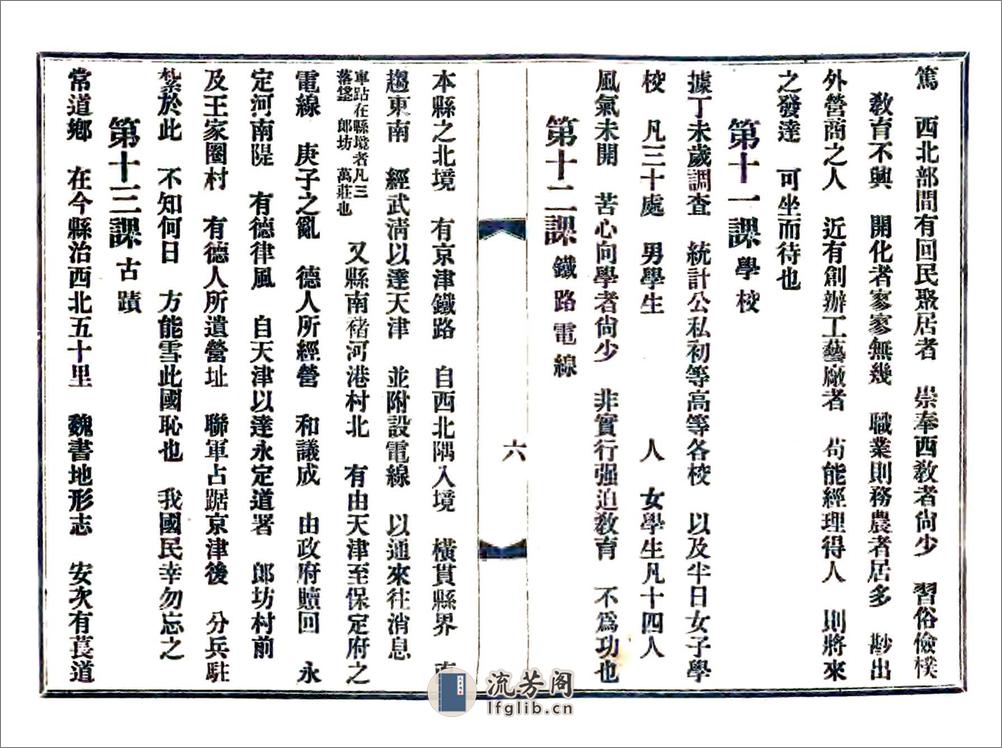 篤　西北部間有回民聚居者　崇奉西敎者尙少　習俗儉樸
敎育不興　開化者寥寥無幾　職業則務農者居多　尠出
外營商之人　近有創辦工藝廠者　苟能經理得人　則將來
之發達　可坐而待也
第十一課 學校
據丁未歲調查　統計公私初等高等各校　以及半日女子學
校　凡三十處　男學生　　　人　女學生凡十四人
風氣未開　苦心向學者尙少　非實行强迫敎育　不爲功也
第十二課 鐵路電線
六
本縣之北境　有京津鐵路　自西北隅入境　橫貫縣界
趨東南　經武淸以達天津　並附設電線　以通來往消息
車站在縣境者凡三
落垡　郎坊　萬莊也　又縣南褚河港村北　有由天津至保定府之
電線　庚子之亂　德人所經營　和議成　由政府贖回　永
定河南隄　有德律風　自天津以達永定道署　郎坊村前
及王家圈村　有德人所遺營址　聯軍占踞京津後　分兵駐
紮於此　不知何日　方能雪此國恥也　我國民幸勿忘之
第十三課 古蹟
常道鄕　在今縣治西北五十里　魏書地形志　安次有萇道
流芳阁
lfglib.cn